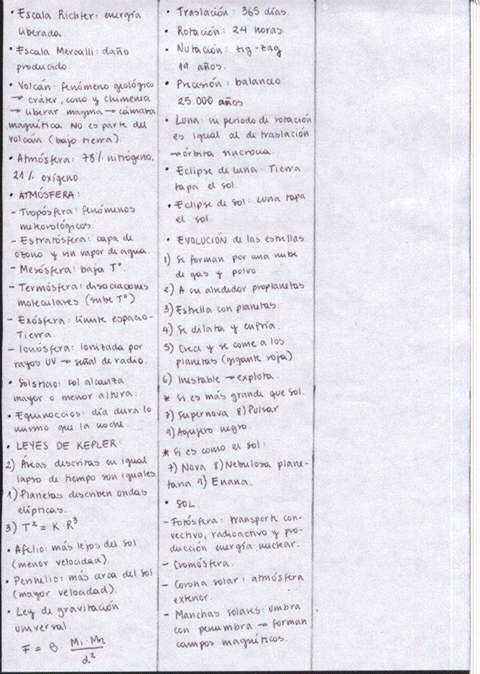 • Escala Richter: energía
liberada.
• Escala Mercalli: daño
producido.
• Volcán: fenómeno geológico
→ cráter, cono y chimenea
→ liberar magma → cámara
magmática. No es parte del
volcán (bajo tierra).
• Atmósfera: 78% nitrógeno,
21% oxígeno
• ATMÓSFERA:
- Tropósfera: fenómenos
meteorológicos.
- Estratósfera: capa de
ozono y sin vapor de agua.
- Mesósfera: baja T°.
- Termósfera: disociaciones
moleculares (sube T°)
- Exósfera: límite espacio-
Tierra.
- Ionósfera: ionizada por
rayos UV → señal de radio.
• Solsticio: sol alcanza
mayor o menor altura.
• Equinoccios: día dura lo
mismo que la noche.
• LEYES DE KEPLER:
2) Áreas descritas en igual
lapso de tiempo son iguales
1) Planetas describen ondas
elípticas.
3) T² = K · R³
• Afelio: más lejos del sol
(menor velocidad).
• Perihelio: más cerca del sol
(mayor velocidad).
• Ley de gravitación
universal
F = G · M₁ · M₂
d²
• Traslación: 365 días.
• Rotación: 24 horas
• Nutación: zig-zag
19 años.
• Precesión: balanceo
25 000 años
• Luna: su periodo de rotación
es igual al de traslación
→ órbita síncrona.
• Eclipse de luna: Tierra
tapa el sol.
• Eclipse de sol: luna tapa
el sol.
• EVOLUCIÓN de las estrellas
1) Se forman por una nube
de gas y polvo
2) A su alrededor proplanetas
3) Estrella con planetas.
4) Se dilata y enfría.
5) Crece y se come a los
planetas (gigante roja)
6) Inestable → explota.
* Si es más grande que sol.
7) Supernova 8) Pulsar
9) Agujero negro.
* Si es como el sol:
7) Nova 8) Nebulosa plane-
taria 9) Enana.
• SOL
- Fotósfera: transporte con-
vectivo, radioactivo y pro-
ducción energía nuclear.
- Cromósfera.
- Corona solar: atmósfera
exterior.
- Manchas solares: umbra
con penumbra → forman
campos magnéticos.